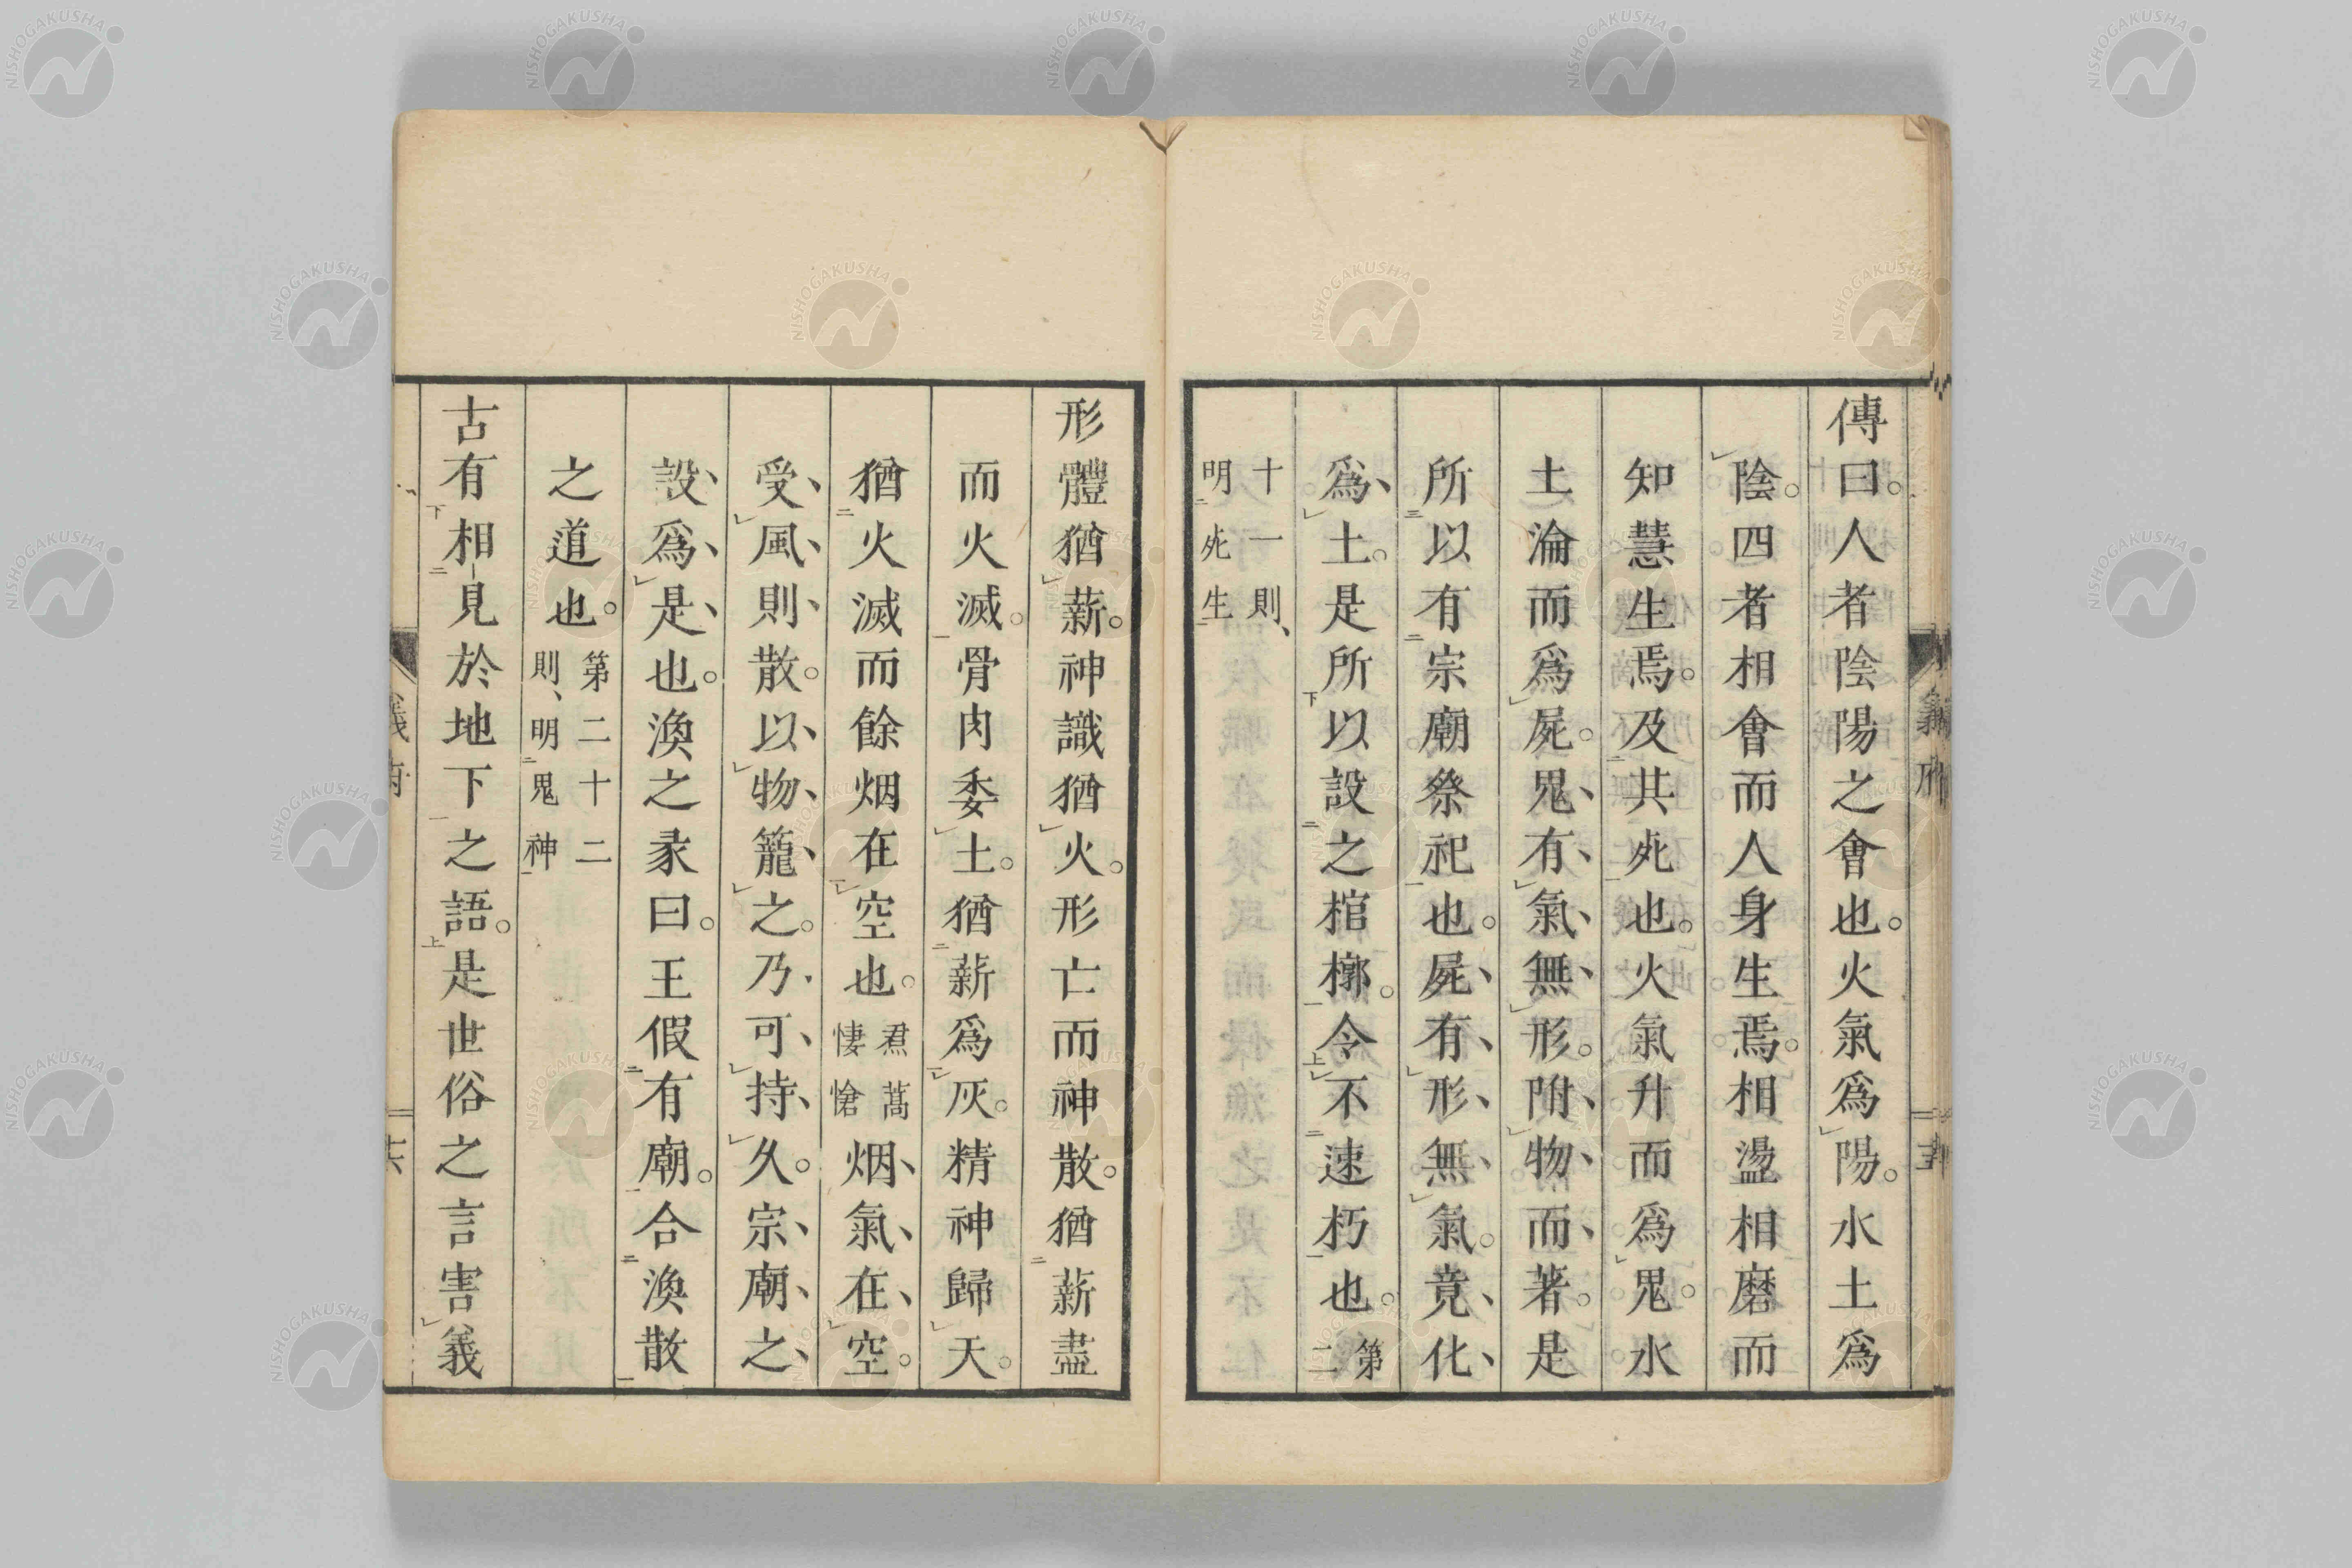 傳曰。人者陰陽之會也。火氣爲陽。水土爲
陰。四者相會而人身生焉。相盪相磨而
知慧生焉。及其死也。火氣升而爲鬼。水
土淪而爲屍。鬼有氣無形。附物而著。是
所以有宗廟祭祀也。屍有形無氣。竟化
爲土。是所以設之棺槨。令不速朽也。第二
十一則、
明死生
形體猶薪。神識猶火。形亡而神散。猶薪盡
而火滅。骨肉委土。猶薪爲灰。精神歸天。
猶火滅而餘烟在空也。焄蒿悽愴烟氣在空。
受風則散。以物籠之。乃可持久。宗廟之
設爲是也。渙之彖曰。王假有廟。合渙散
之道也。第二十二則、明鬼神
古有相見於地下之語。是世俗之言害義
義府
NISHOGAKUSHA